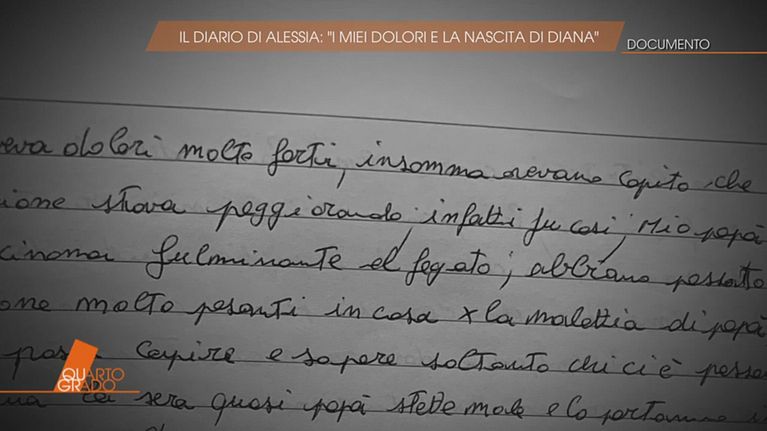 IL DIARIO DI ALESSIA: "I MIEI DOLORI E LA NASCITA DI DIANA"
DOCUMENTO
eva dolori molto forti, insomma avevano capito che
ione stava peggiorando, infatti fu così, Mio papà
cinoma fulminante el fegato; abbiamo passato
one molto pesanti in casa x la malattia di papà
possa capire e sapere soltanto chi ci è passa
sera quasi papà stette male e lo portammo
QUARTO
GRADO